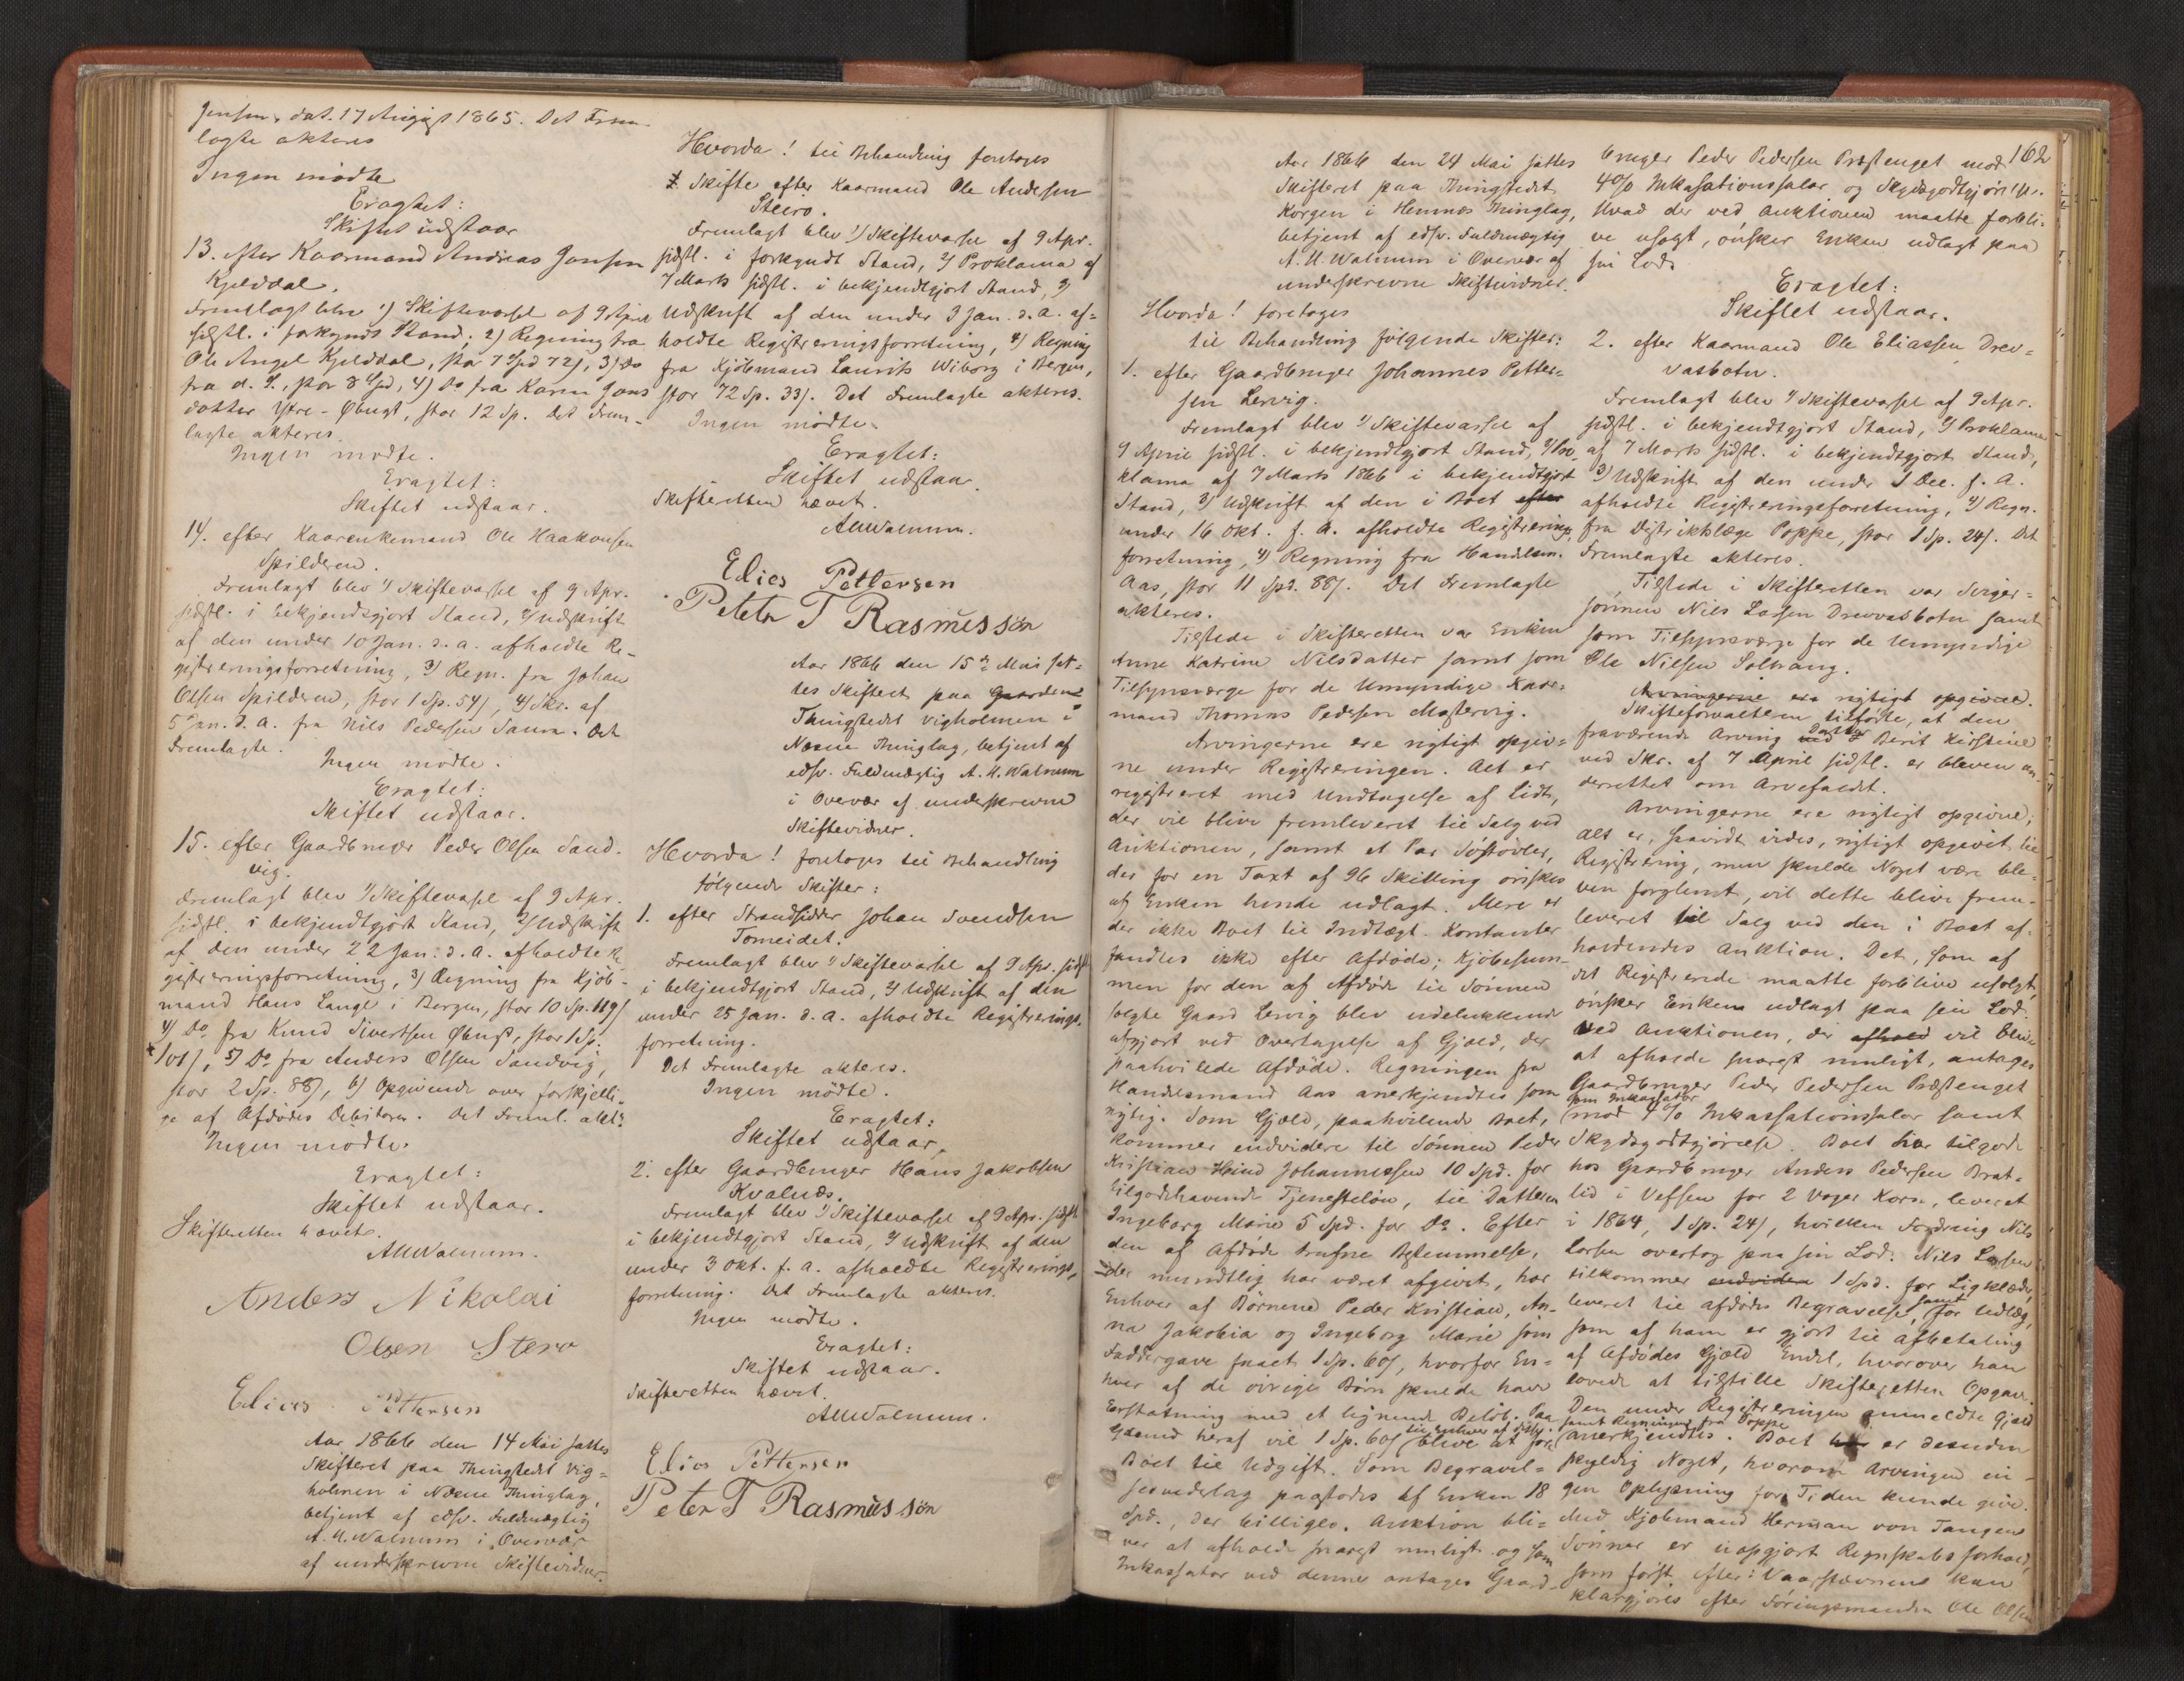 Jensen, dat. 17 August 1865. Det Frem-
lagte akteres
Ingen mødte
Eragtet:
Skiftet udstaar
13. efter Kaarmand Andreas Jensen
Kjelddal.
Fremlagt blev 1) Skiftevarsel af 9 April
sidstl. i forkyndt Stand; 2) Regning fra
Ole Angel Kjelddal, stor 7 Spd 72ʃ, 3) Do
fra d. S., stor 8 Spd, 4) Do fra Karen Jons
datter Ytre-Øbugt, stor 12 Sp. Det Frem-
lagte akteres.
Ingen mødte.
Eragtet:
Skiftet udstaar.
14. efter Kaarenkemand Ole Haakonsen
Spilderen.
Fremlagt blev 1) Skiftevarsel af 9 Apr.
sidstl. i bekjendtgjort Stand, 2) Udskrift
af den under 10 Jan. d. A. afholdte Re-
gistreringsforretning, 3) Regn. fra Johan
Olsen Spilderen, stor 1 Sp. 54ʃ, 4) Skr. af
5 Jan. d. A. fra Nils Pedersen Saura. Det
Fremlagte.
Ingen mødte.
Eragtet:
Skiftet udstaar.
15. efter Gaardbruger Peder Olsen Sand-
vig.
Fremlagt blev 1) Skiftevarsel af 9 Apr.
sidstl. i bekjendtgjort Stand, 2) Udskrift
af den under 22 Jan. d. A. afholdte Re-
gistreringsforretning, 3) Regning fra Kjøb-
mand Hans Lange i Bergen, stor 10 Sp. 119ʃ
4) Do fra Knud Sivertsen Øbugt, stor 1 Sp.
101ʃ, 5) Do fra Anders Olsen Sandvig,
stor 2 Sp. 88ʃ, 6) Opgivende over forskjelli-
ge af Afdødes Debitorer. Det Freml. akt:
Ingen mødte.
Eragtet:
Skiftet udstaar.
Skifteretten hævet.
AMWalnum.
Anders Nikolai
Olsen Stero
Elias Pettersen
Aar 1866 den 14 Mai sattes
Skifteret paa Thingstedet Vig-
holmen i Næsne Thinglag,
betjent af edsv. Fuldmægtig
A. M. Walnum i Overvær
af underskrevne Skiftevidner.
Hvorda! til Behandling foretoges
Skifte efter Kaarmand Ole Andersen
Steiro.
Fremlagt blev 1) Skiftevarsel af 9 Apr.
sidstl. i forkyndt Stand, 2) Proklama af
7 Marts sidstl. i bekjendtgjort Stand, 3)
Udskrift af den under 9 Jan. d. A. af=
holdte Registreringsforretning, 4) Regning
fra Kjøbmand Laurits Wiborg i Bergen,
stor 72 Sp. 33ʃ. Det Fremlagte akteres.
Ingen mødte.
Eragtet:
Skiftet udstaar.
Skifteretten hævet.
AMWalnum.
Elies Pettersen
Peter T Rasmussøn
Aar 1866 den 15de Mai sat=
tes Skifteret paa Gaarden
Thingstedet Vigholmen i
Næsne Thinglag, betjent af
edsv. Fuldmægtig A. M. Walnum
i Overvær af underskrevne
Skiftevidner.
Hvorda! foretoges til Behandling
følgende Skifter:
1. efter Strandsidder Johan Svendsen
Tomeidet.
Fremlagt blev 1) Skiftevarsel af 9 Apr. sidstl.
i bekjendtgjort Stand, 2) Udskrift af den
under 25 Jan. d. A. afholdte Registrerings-
forretning.
Det Fremlagte akteres.
Ingen mødte.
Eragtet:
Skiftet udstaar.
2. efter Gaardbruger Hans Jakobsen
Kvalnæs.
Fremlagt blev 1) Skiftevarsel af 9 Apr. sidstl.
i bekjendtgjort Stand, 2) Udskrift af den
under 3 Okt. f. A. afholdte Registrerings-
forretning. Det Fremlagte akteres.
Ingen mødte.
Eragtet:
Skiftet udstaar.
Skifteretten hævet.
AMWalnum.
Elies Pettersen
Peter T Rasmussøn
Aar 1866 den 24 Mai sattes
Skifteret paa Thingstedet
Korgen i Hemnæs Thinglag,
betjent af edsv. Fuldmægtig
A. M. Walnum i Overvær af
underskrevne Skiftevidner.
Hvorda! foretoges
til Behandling følgende Skifter:
1. efter Gaardbruger Johannes Petter=
sen Lervig.
Fremlagt blev 1) Skiftevarsel af
9 April sidstl. i bekjendtgjort Stand, 2) Pro-
klama af 7 Marts 1866 i bekjendtgjort
Stand, 3) Udskrift af den i Boet efter
under 16 Okt. f. A. afholdte Registrerings-
forretning, 4) Regning fra Handelsm.
Aas, stor 11 Spd. 88ʃ. Det Fremlagte
akteres.
Tilstede i Skifteretten var Enken
Anne Katrine Nilsdatter samt som
Tilsynsværge for de Umyndige Kaar=
mand Thomas Pedersen Mastervig.
Arvingerne ere rigtigt opgiv=
ne under Registreringen. Alt er
registreret med Undtagelse af Lidt,
der vil blive fremleveret til Salg ved
Auktionen, samt et Par Søstøvler,
der for en Taxt af 96 Skilling ønskes
af Enken hende udlagt. Mere er
der ikke Boet til Indtægt. Kontanter
fandtes ikke efter Afdøde; Kjøbesum-
men for den af Afdøde til Sønnen
solgte Gaard Lervig blev udelukkende
afgjort ved Overtagelse af Gjæld, der
paahvilede Afdøde. Regningen fra
Handelsmand Aas anerkjendtes som
rigtig. Som Gjæld, paahvilende Boet,
kommer endvidere til Sønnen Peder
Kristian Hind Johannessen 10 Spd. for
tilgodehavende Tjenesteløn, til Datteren
Ingeborg Marie 5 Spd. for Do. Efter
den af Afdøde trufne Bestemmelse,
der mundtlig har været afgivet, har
Enhver af Børnene Peder Kristian, An-
na Jakobia og Ingeborg Marie som
Faddergave faaet 1 Sp. 60ʃ, hvorfor En=
hver af de øvrige Børn skulde have
Erstatning med et lignende Beløb. Paa
Grund heraf vil 1 Sp. 60ʃ til Enhver af disse blive at føre
Boet til Udgift. Som Begravel=
sesvederlag paastodes af Enken 18
Spd., der billiges. Auktion bli=
ver at afholde snarest muligt og som
Inkassator ved denne antages Gaard-
162
bruger Peder Pedersen Præstenget mod
4% Inkasationssalær og Skydsgodtgjørelse.
Hvad der ved Auktionen maatte forbli-
ve usolgt, ønsker Enken udlagt paa
sin Lod.
Eragtet:
Skiftet udstaar.
2. efter Kaarmand Ole Eliassen Drev=
vasbotn.
Fremlagt blev 1) Skiftevarsel af 9 Apr.
sidstl. i bekjendtgjort Stand, 2) Proklama
af 7 Marts sidstl. i bekjendtgjort Stand,
3) Udskrift af den under 1 Dec. f. A.
afholdte Registreringsforretning, 4) Regn.
fra Distriktslæge Poppe, stor 1 Sp. 24ʃ. Det
Fremlagte akteres.
Tilstede i Skifteretten var Sviger=
sønnen Nils Larsen Drevvasbotn samt
som Tilsynsværge for de Umyndige
Ole Nilsen Solvang.
Arvingerne ere rigtigt opgivne.
Skifteforvalteren tilførte, at den
fraværende Arving Datter Berit Kirstine
ved Skr. af 7 April sidstl. er bleven un-
derrettet om Arvefaldet.
Arvingerne ere rigtigt opgivne;
Alt er, saavidt vides, rigtigt opgivet til
Registrering, men skulde Noget være ble=
ven forglemt, vil dette blive frem-
leveret til Salg ved den i Boet af-
holdendes Auktion. Det, som af
det Registrerede maatte forblive usolgt,
ønsker Enken udlagt paa sin Lod.
Ved Auktionen, der afhold vil blive
at afholde snarest muligt, antages
Gaardbruger Peder Pedersen Præstenget
som Inkassator mod 4% Inkassationssalær samt
Skydsgodtgjørelse. Boet har tilgode
hos Gaardbruger Anders Pedersen Brat-
lid i Vefsen for 2 Voger Korn, leveret
i 1864, 1 Sp. 24ʃ, hvilken Fordring Nils
Larsen overtog paa sin Lod. Nils Larsen
tilkommer endvidere 1 Spd. for Ligklæder,
leveret til Afdødes Begravelse, samt for Udlæg,
som af ham er gjort til Afbetaling
af Afdødes Gjæld Endel, hvorover han
lovede at tilstille Skifteretten Opgave.
Den under Registreringen anmeldte Gjæld
samt Regningen fra Poppe anerkjendtes. Boet er desuden
skyldig Noget, hvorom Arvingen in-
gen Oplysning for Tiden kunde give.
Med Kjøbmand Herman von Tangens
Sønner er uopgjort Regnskabsforhold,
som først efter Vaarstævnene kan
klargjøres efter Føringsmanden Ole Olsen